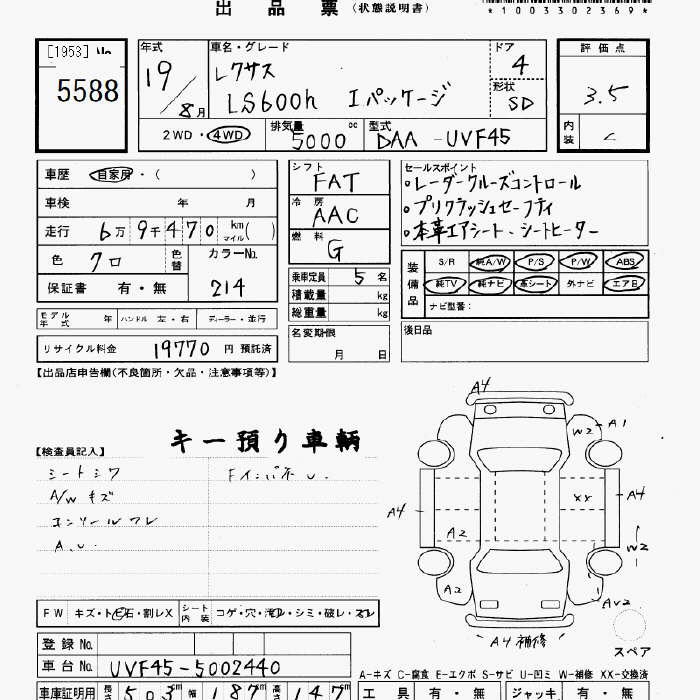 出品票（状態説明書）
*1003302369*
[1953] No
5588
年式
19／8月
車名・グレード
レクサス
LS600h Iパッケージ
ドア
4
形状
SD
評価点
3.5
内装
C
2WD・4WD
排気量
5000 cc
型式
DAA-UVF45
車歴 自家用・（ ）
車検 年 月
走行 6万9千470 km マイル（ ）
色 クロ 色替
カラーNo.
214
保証書 有・無
シフト
FAT
冷房
AAC
燃料
G
乗車定員 5名
積載量 kg
総重量 kg
名変期限
月 日
セールスポイント
・レーダークルーズコントロール
・プリクラッシュセーフティ
・本革エアシート、シートヒーター
装備品
S/R 純A/W P/S P/W ABS
純TV 純ナビ 革シート 外ナビ エアB
ナビ型番：
後日品
モデル年式 年 ハンドル 左・右 ディーラー・並行
リサイクル料金 19770 円 預託済
【出品店申告欄(不良箇所・欠品・注意事項等)】
キー預り車輌
【検査員記入】
シートシワ Fインパネ U.
A/Wキズ
A.U.
A4
W2 A1
A4 XX A4
A2 W2
A2 AW2
A4 補修
スペア
FW キズ・ト石・割レX シート内装 コゲ・穴・シミ・破レ・スレ
登録No.
車台No. UVF45-5002440
A-キズ C-腐食 E-エクボ S-サビ U-凹ミ W-補修 XX-交換済
車庫証明用 長さ 503 cm 幅 187 cm 高さ 147 cm
工具 有・無 ジャッキ 有・無